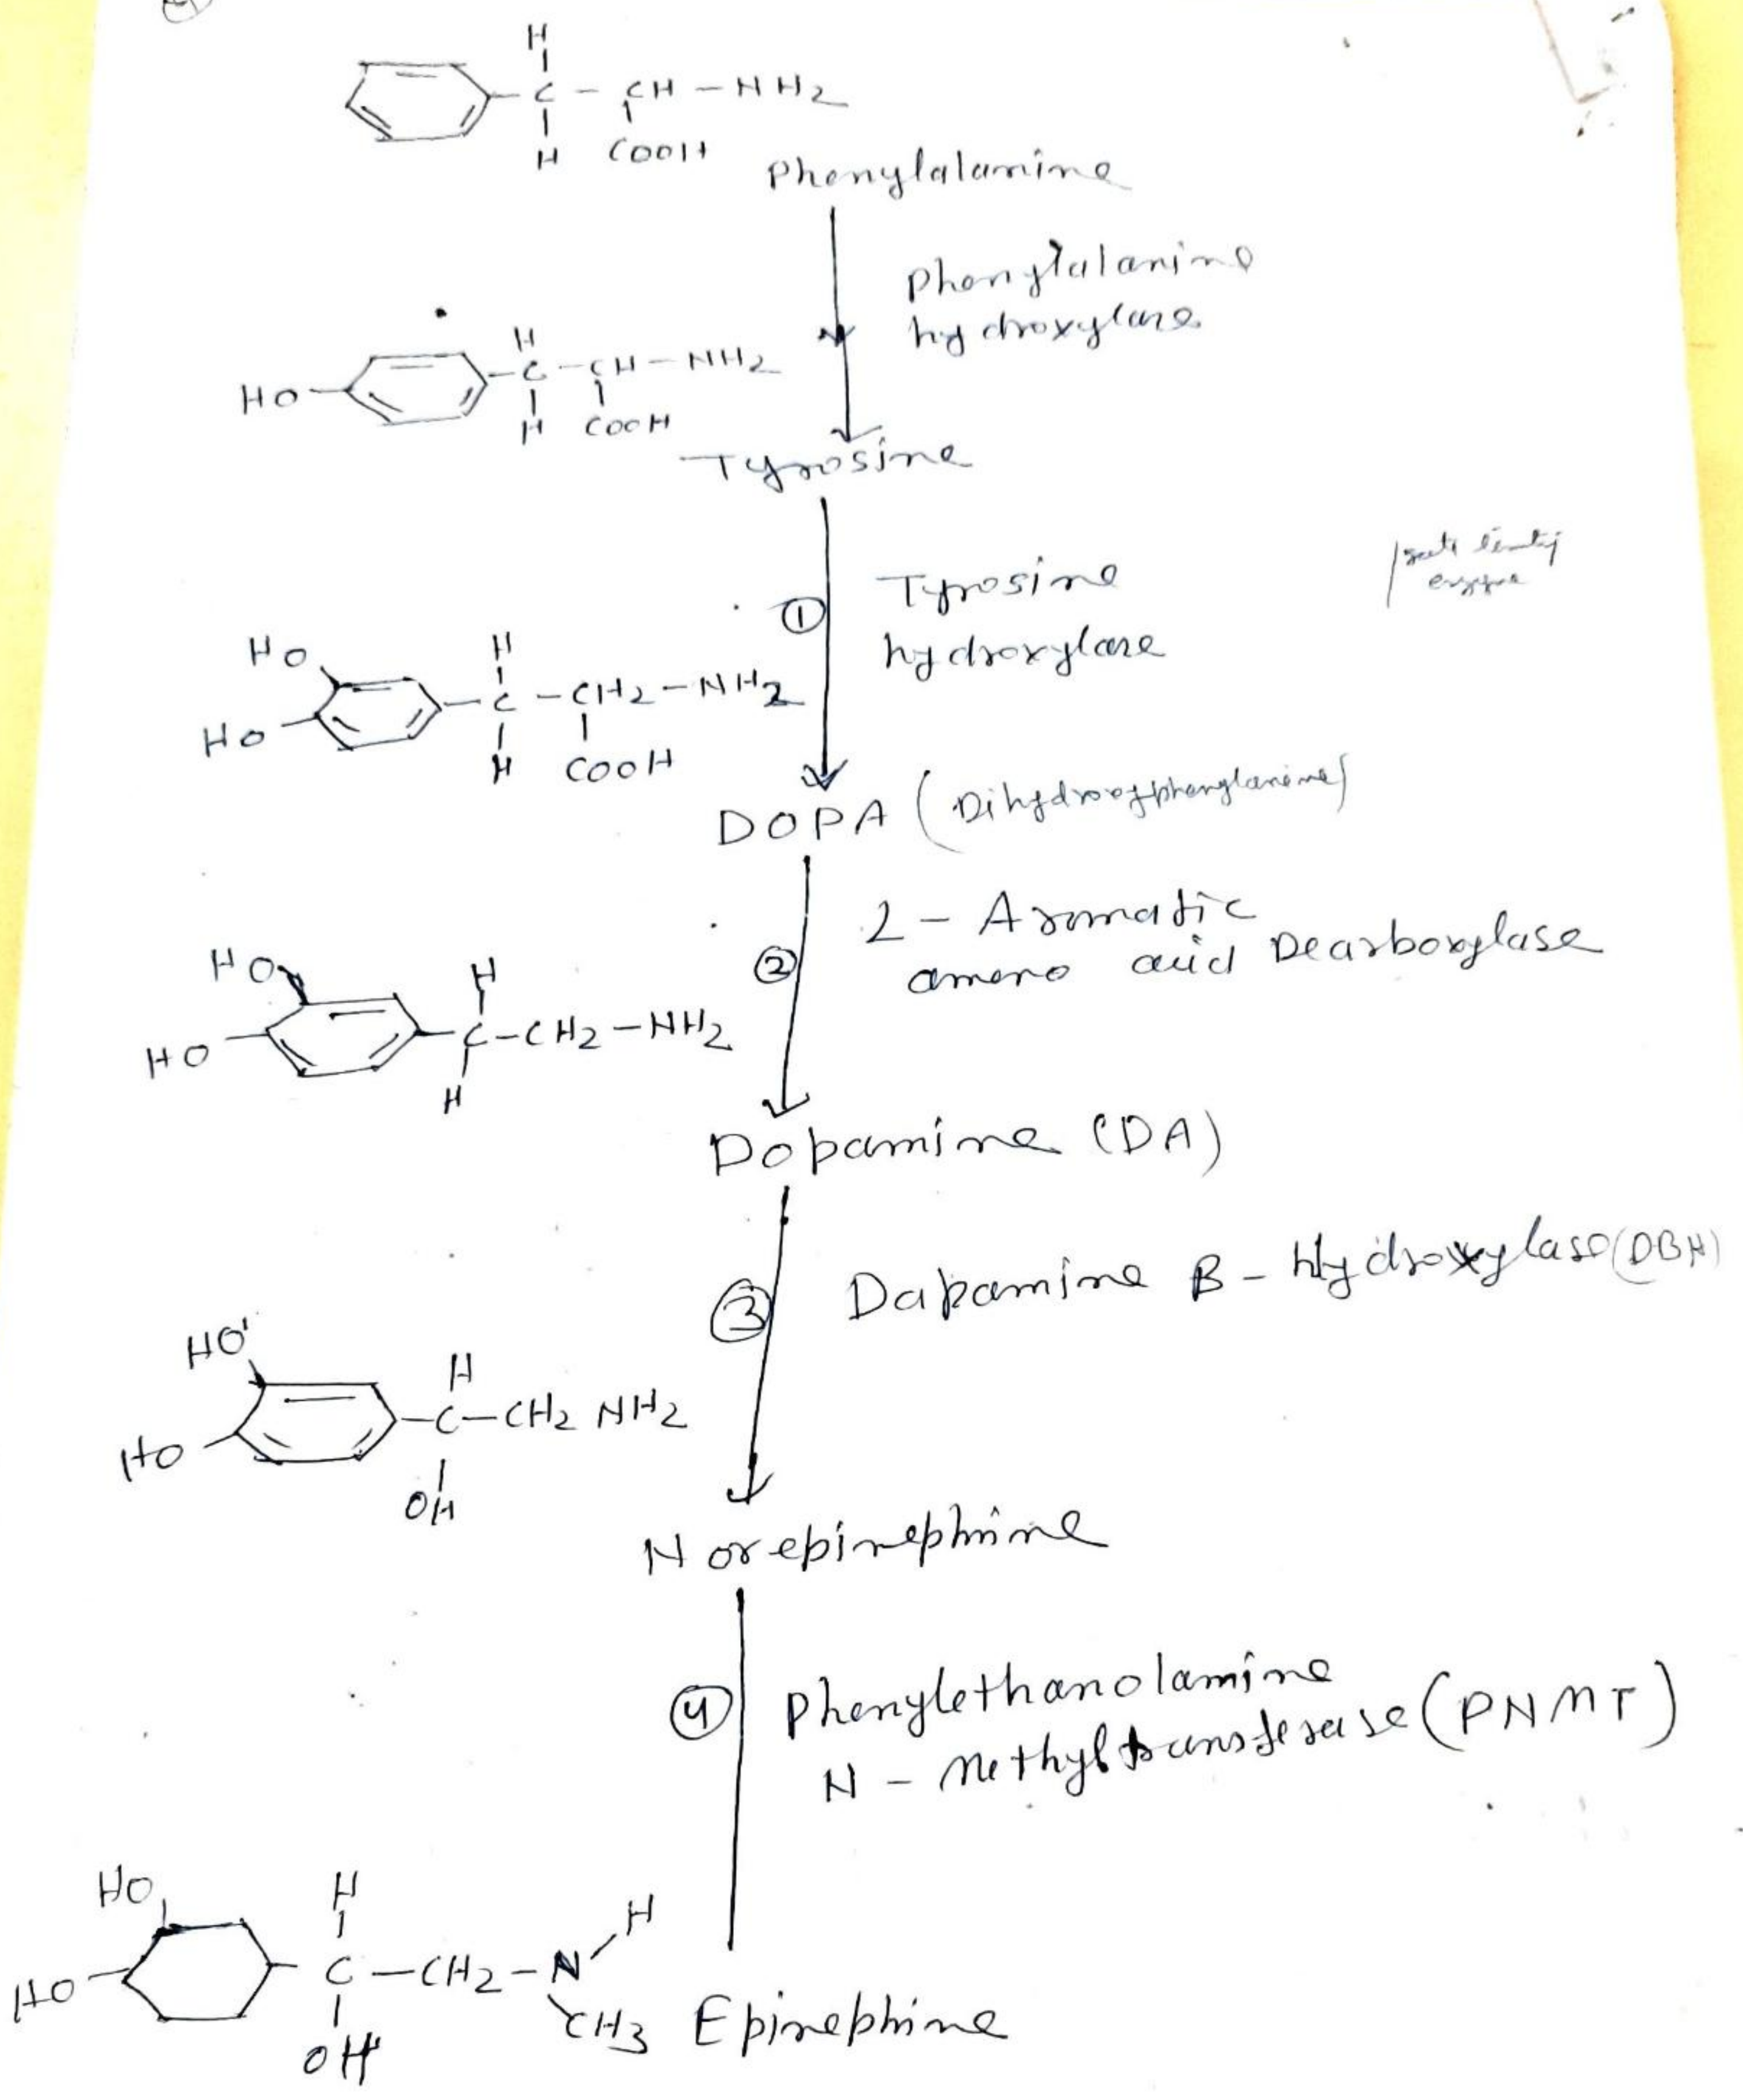 H
C - CH - NH2
H COOH
Phenylalamine
Phenylalanine
hydroxylase
H
HO C - CH - NH2
H COOH
Tyrosine
① Tyrosine
hydroxylase
enzyme
HO H
HO C - CH2 - NH2
H COOH
DOPA (Dihydroxyphenylanine)
② 2 - Aromatic
ameno acid Dearboxylase
HO H
HO C - CH2 - NH2
H
Dopamine (DA)
③ Dapamine B - Hydroxylase (DBH)
HO H
HO C - CH2 NH2
OH
Norepinephrine
④ Phenylethanolamine
N - Methyltransferase (PNMT)
HO H H
HO C - CH2 - N
OH CH3 Epinephrine